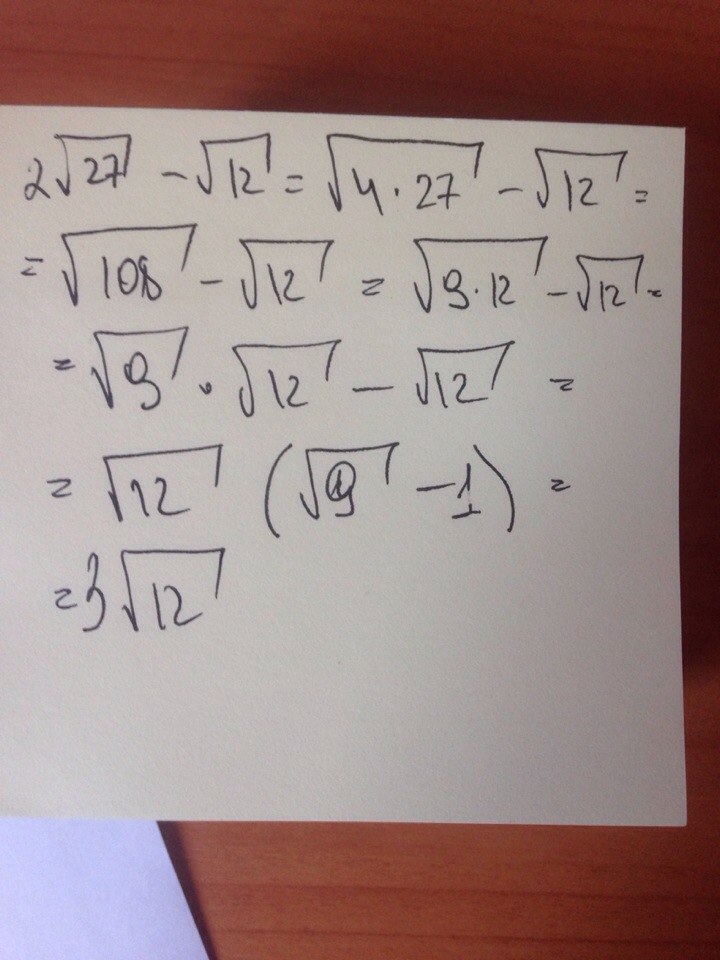 2√27 - √12 = √4·27 - √12 =
= √108 - √12 = √9·12 - √12 =
= √9 · √12 - √12 =
= √12 (√9 - 1) =
= 3√12